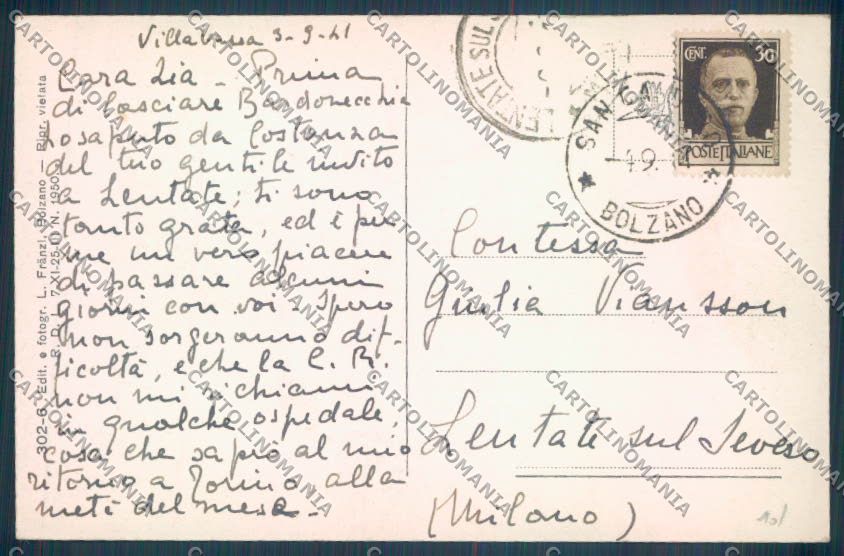 Villabassa 3-9-41
Cara Zia - Prima
di lasciare Bardonecchia
ho saputo da Costanza
del tuo gentile invito
a Lentate; ti sono
tanto grata, ed è per
me un vero piacere
di passare alcuni
giorni con voi. Spero
non sorgeranno dif-
ficoltà, e che la C. R.
non mi richiami
in qualche ospedale,
cosa che saprò al mio
ritorno a Torino alla
metà del mese -
302-6 - Edit. e fotogr. L. Fränzl, Bolzano — Ripr. vietata
LENTATE SUL S
CENT. 30
POSTE ITALIANE
SAN
-4 9.
BOLZANO
Contessa
Giulia Viansson
Lentate sul Seveso
(Milano)
CARTOLINOMANIA